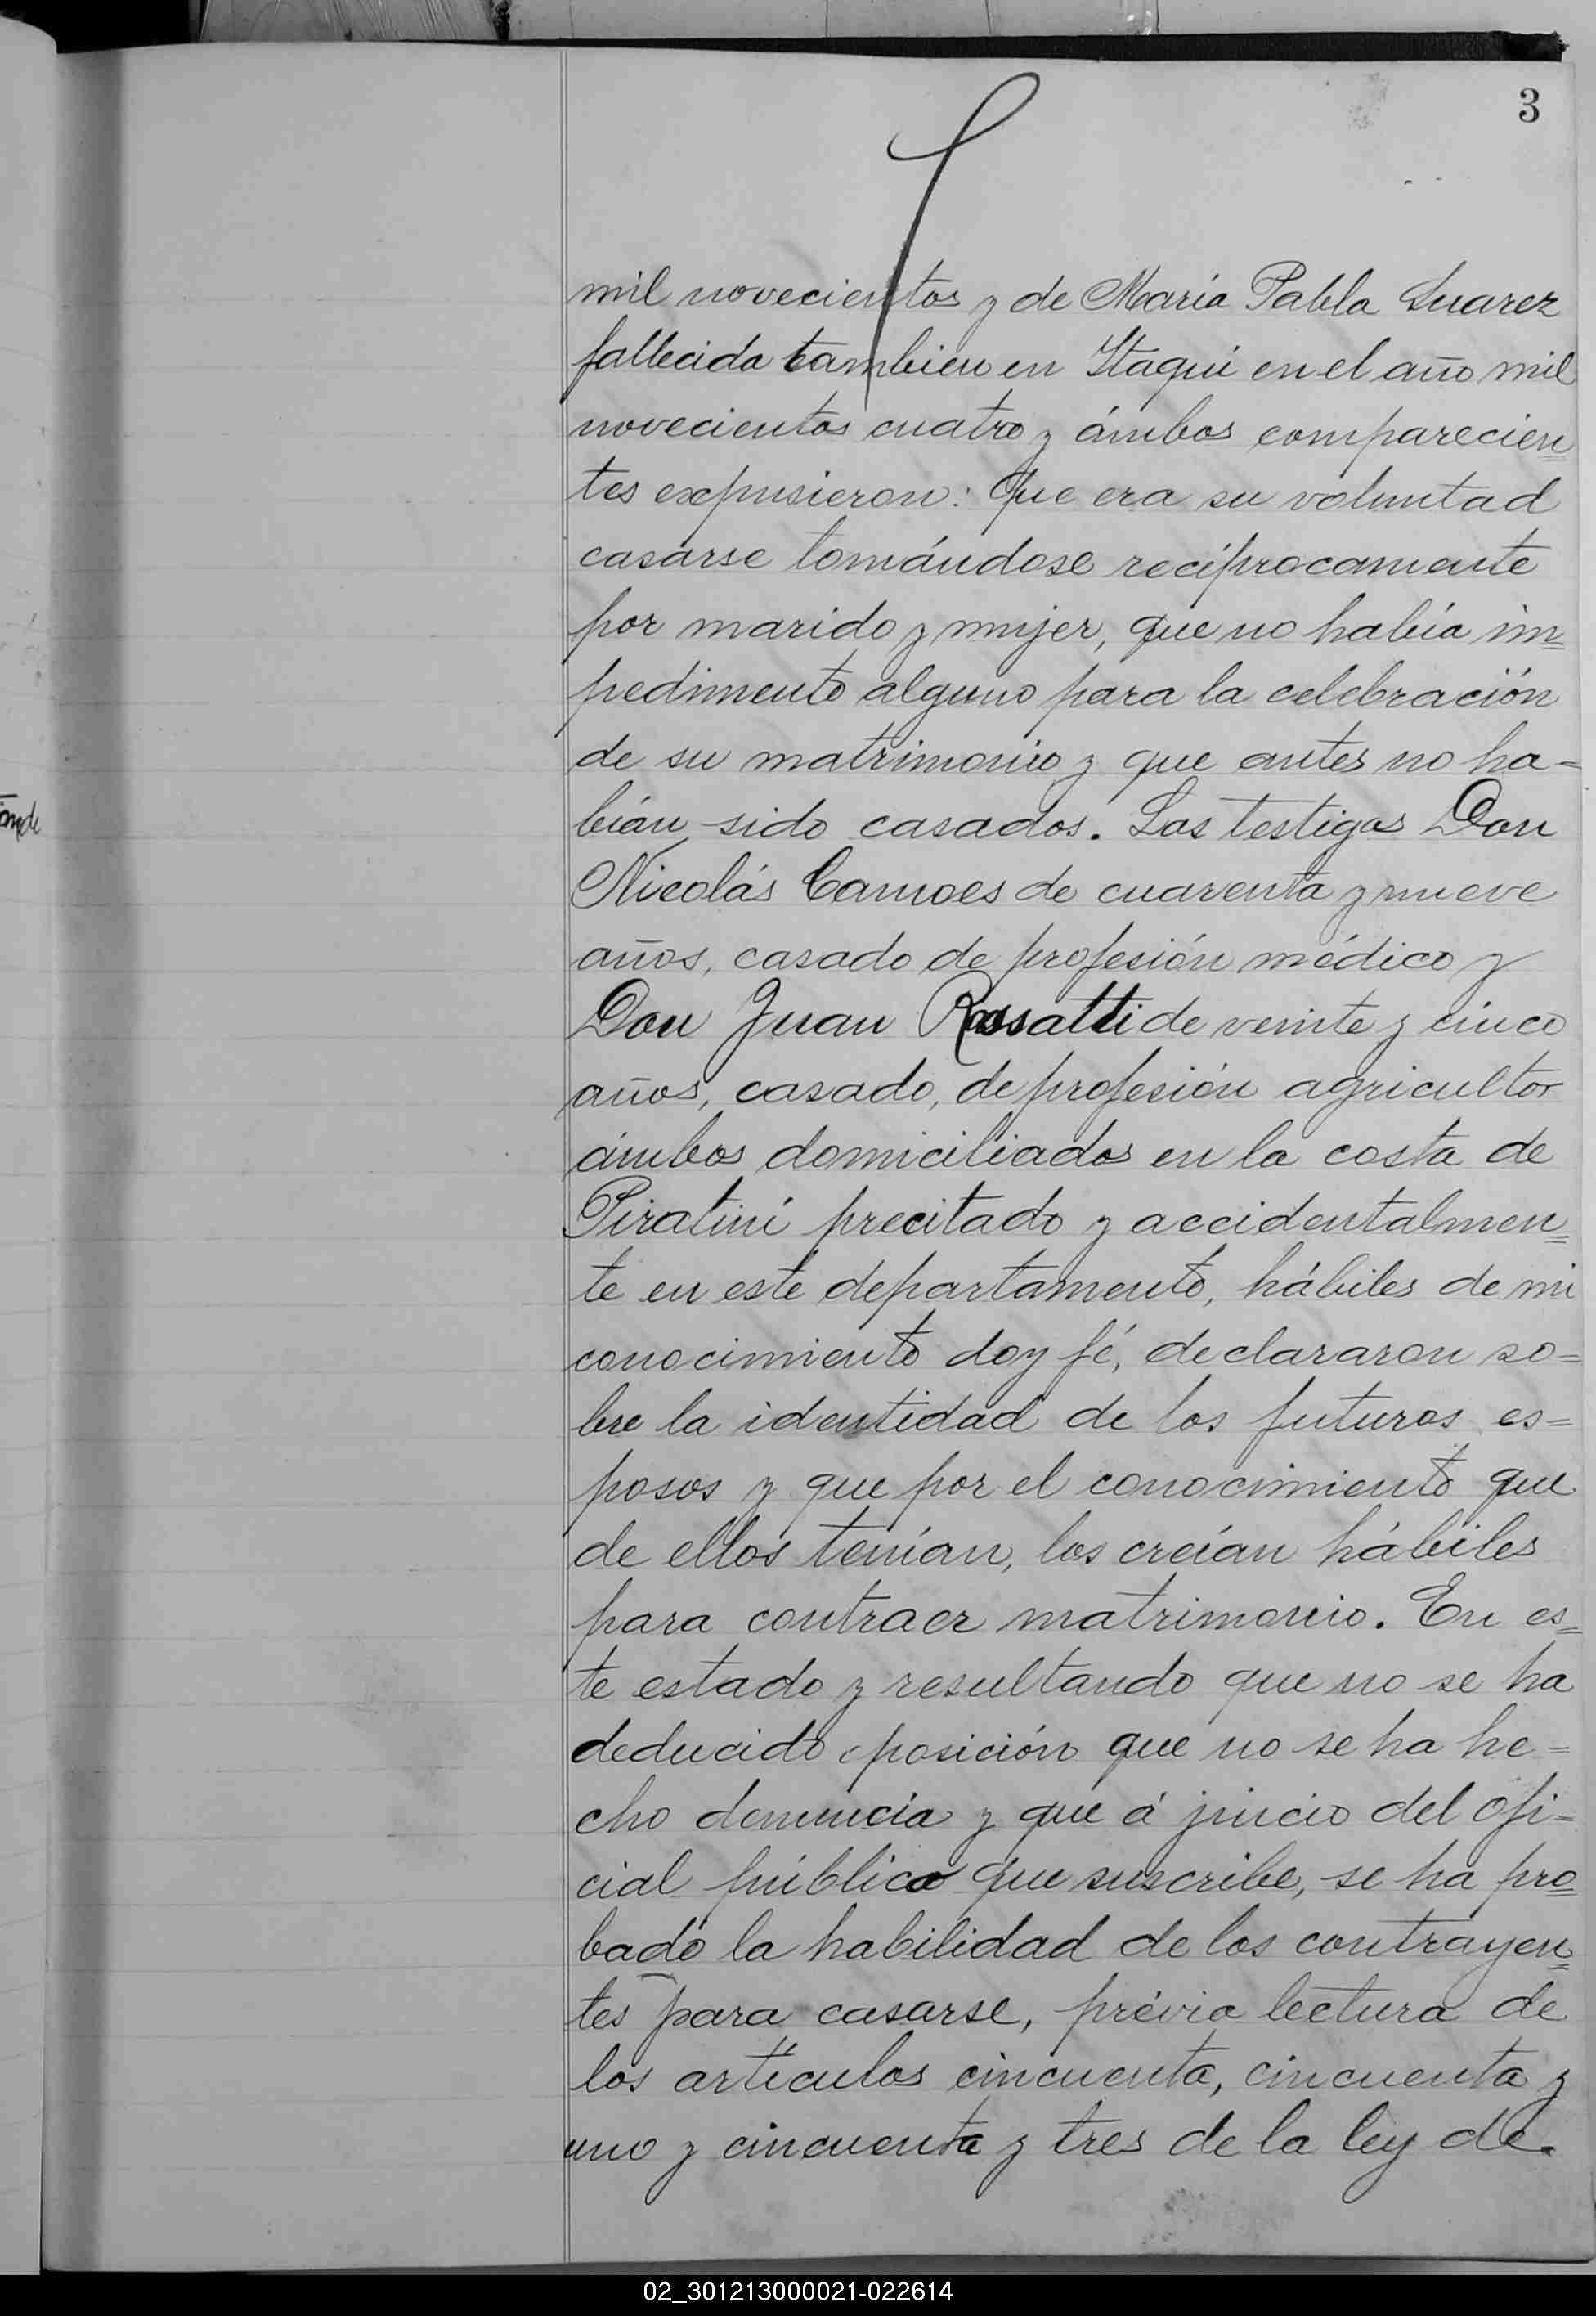 3
mil novecientos y de María Pabla Suarez
fallecida tambien en Itaqui en el año mil
novecientos cuatro y ámbos comparecien
tes expusieron: Que era su voluntad
casarse tomándose recíprocamente
por marido y mujer, que no había im
pedimento alguno para la celebración
de su matrimonio y que antes no ha-
bían sido casados. Los testigos Don
Nicolás Camoes de cuarenta y nueve
años, casado de profesión médico y
Don Juan Rossatti de veinte y cinco
años, casado, de profesión agricultor
ámbos domiciliados en la costa de
Piratiní precitado y accidentalmen
te en este departamento, hábiles de mi
conocimiento doy fé, declararon so=
bre la identidad de los futuros es=
posos y que por el conocimiento que
de ellos tenían, los creían hábiles
para contraer matrimonio. En es
te estado y resultando que no se ha
deducido oposición que no se ha he=
cho denuncia y que á juicio del ofi-
cial público que suscribe, se ha pro
bado la habilidad de los contrayen
tes para casarse, prévia lectura de
los artículos cincuenta, cincuenta y
uno y cincuenta y tres de la ley de
02_301213000021-022614